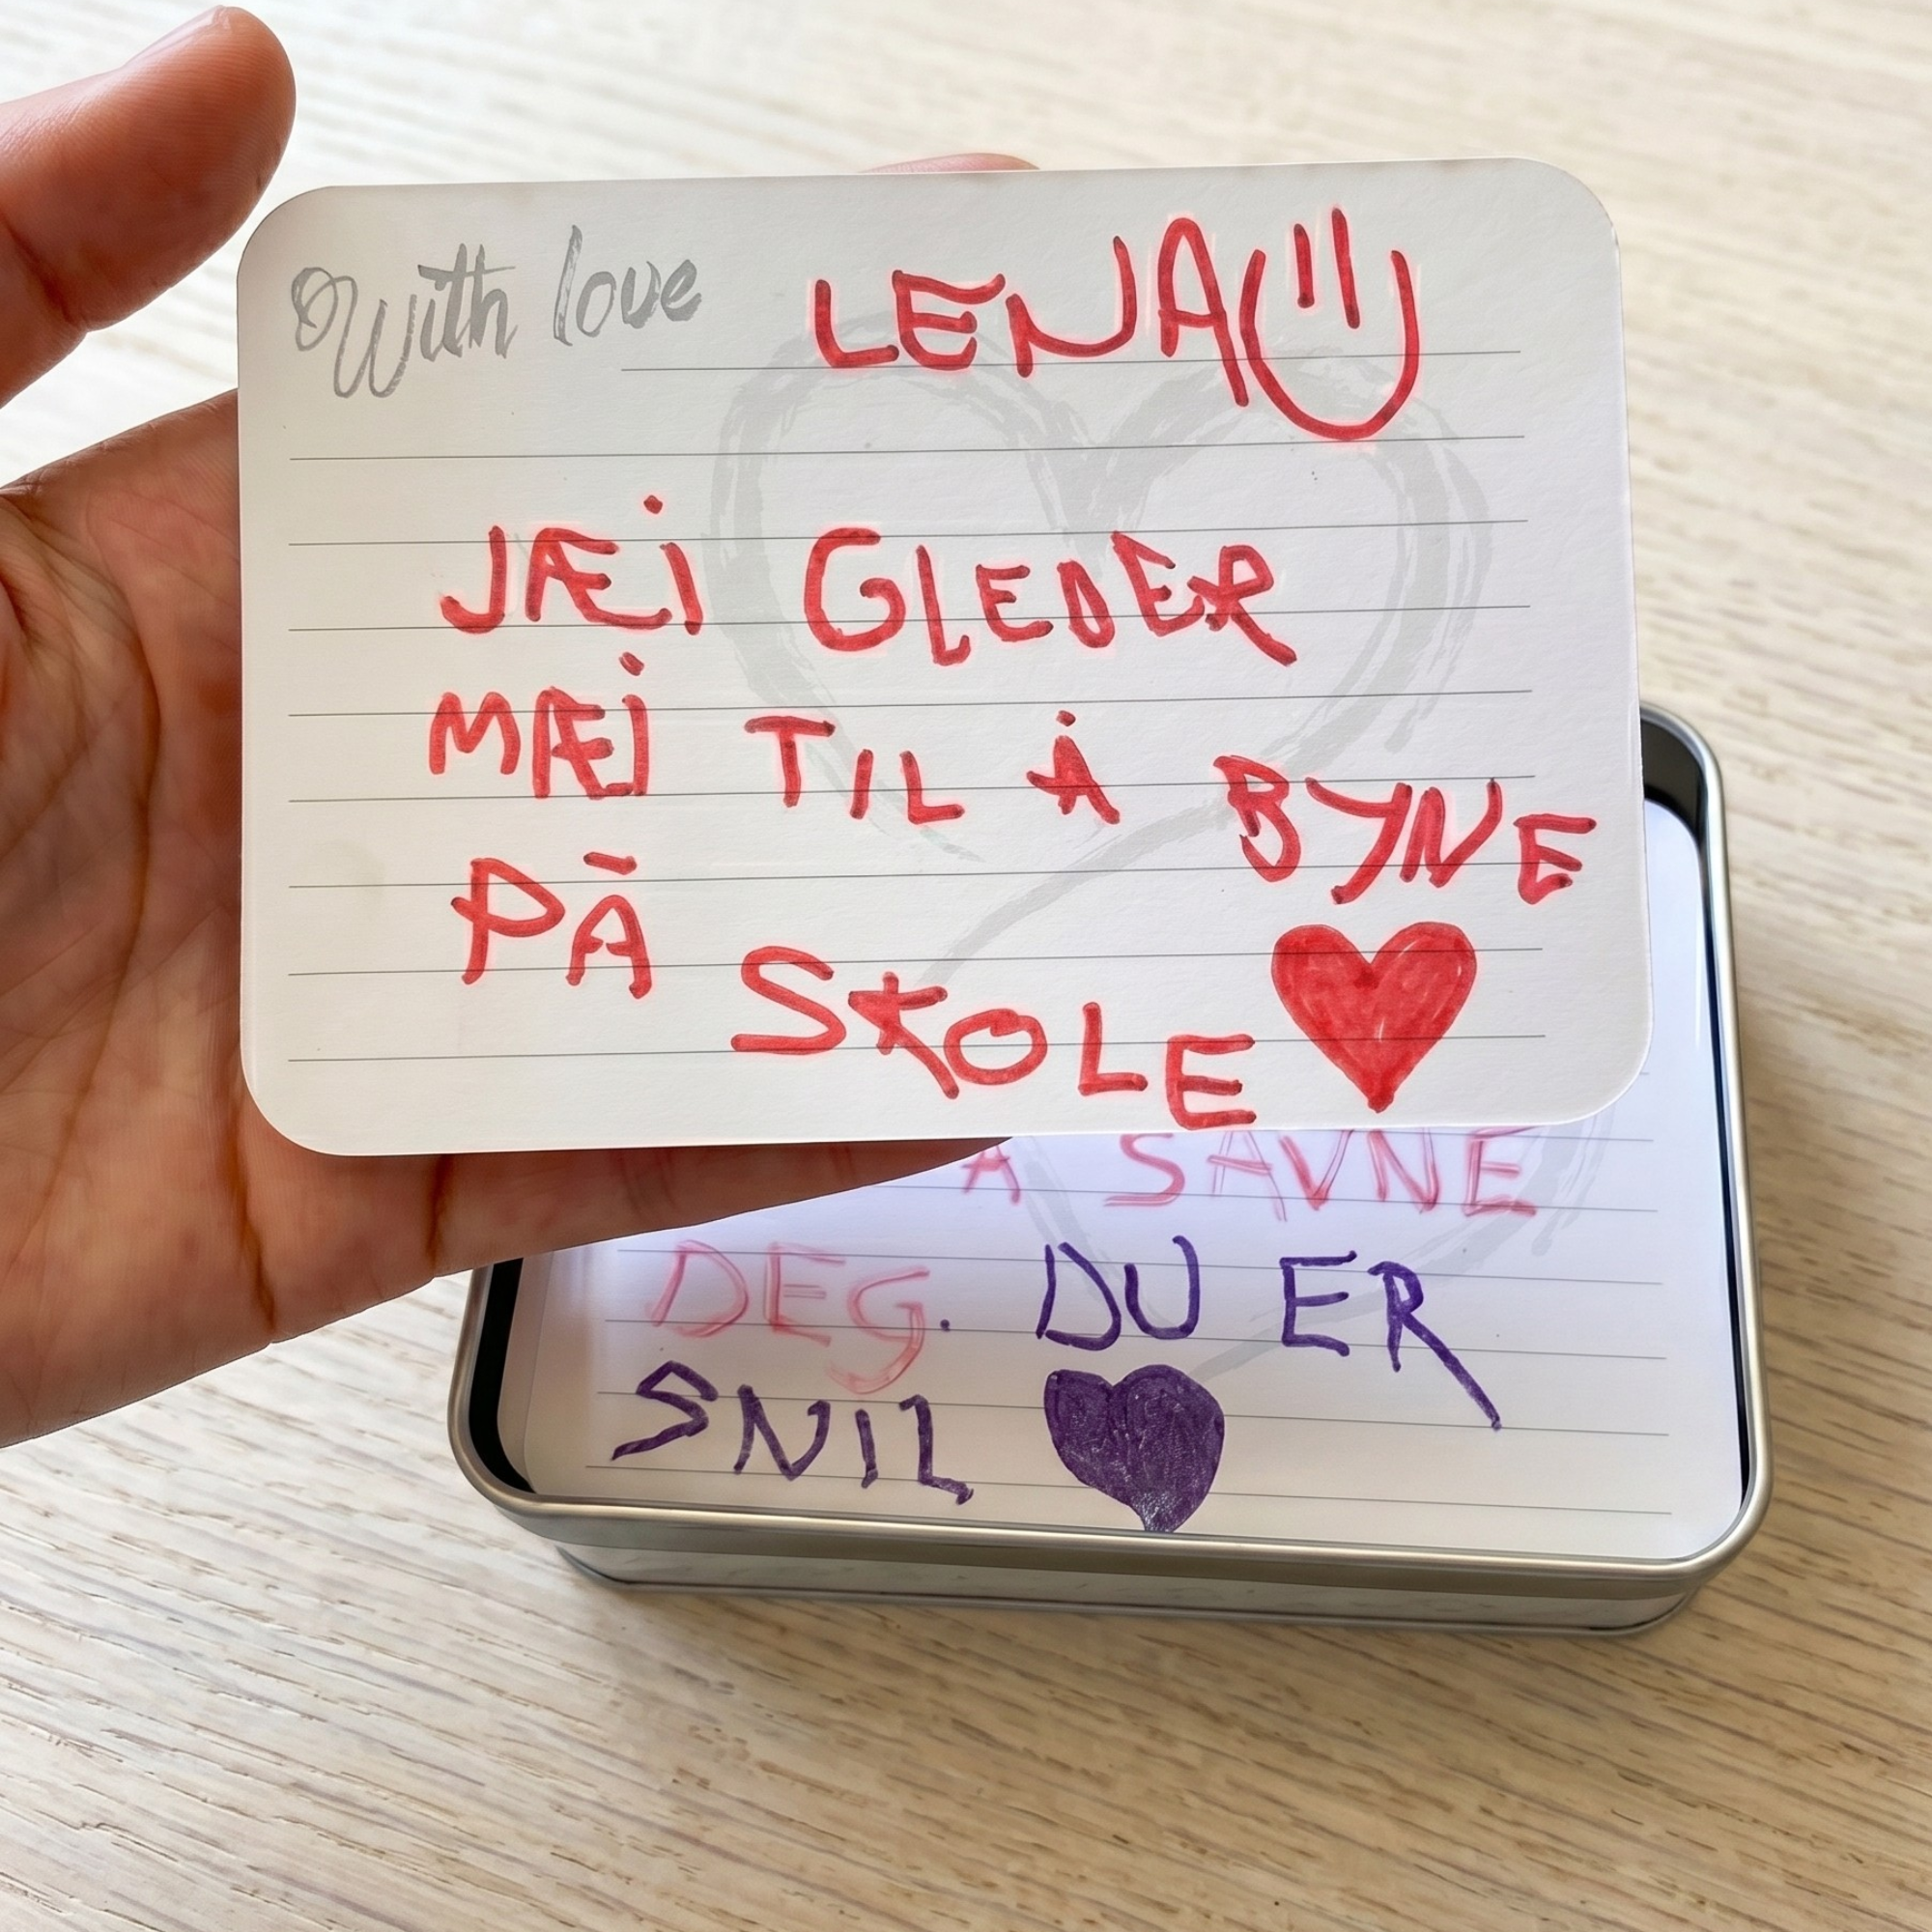 With love LENA
JÆi GLEDER
MÆi TIL Å BYNE
PÅ SKOLE
Å SAVNE
DEG. DU ER
SNIL